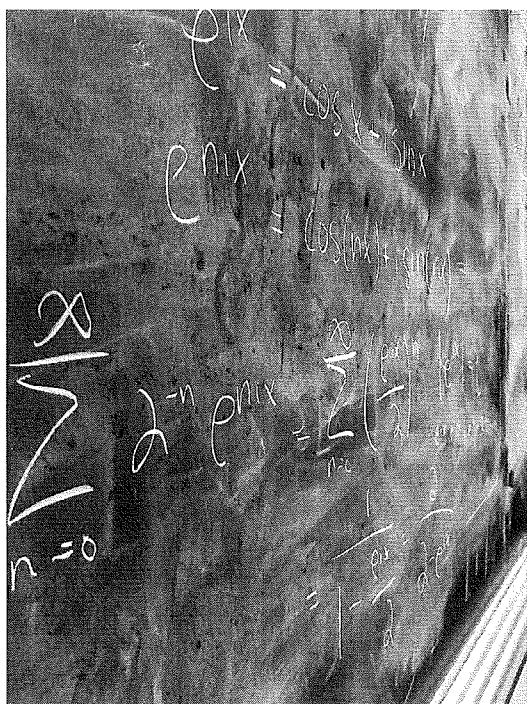 e^{ix} = cos x - i sin x
e^{nix} = cos(nx) + i sin(nx) =
\sum_{n=0}^{\infty} 2^{-n} e^{nix} = \sum_{n=0}^{\infty} \left(\frac{e^{ix}}{2}\right)^n
= \frac{1}{1 - \frac{e^{ix}}{2}} = \frac{2}{2 - e^{ix}}